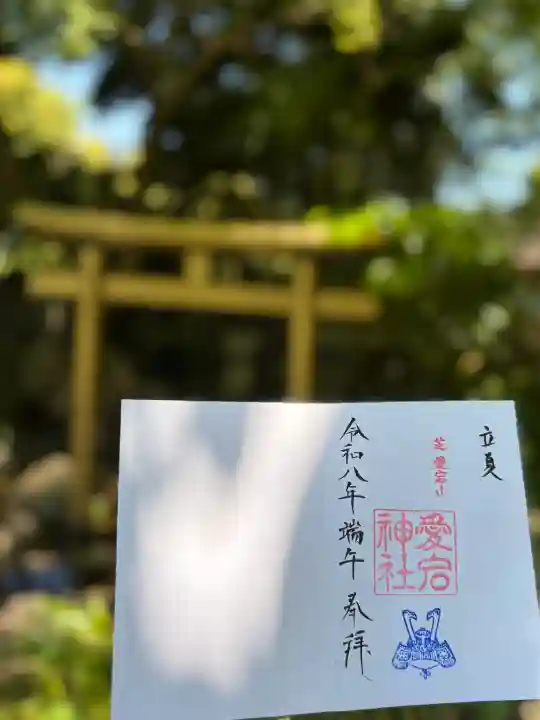 立夏
芝愛宕山
愛宕
神社
令和八年端午奉拝